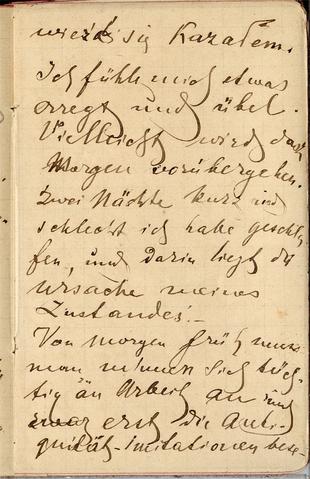 wieder sig Kazatem.
Ich fühle mich etwas
erregt und übel.
Vielleicht wird das
Morgen vorübergehen.
Zwei Nächte kurz und
schlecht ich habe geschla
fen, und darin liegt die
Ursache meines
Zustandes.-
Von morgen früh muss
man sich tüch-
tig an Arbeit an und
zwar erst die Anti-
quität-imitationen bese-